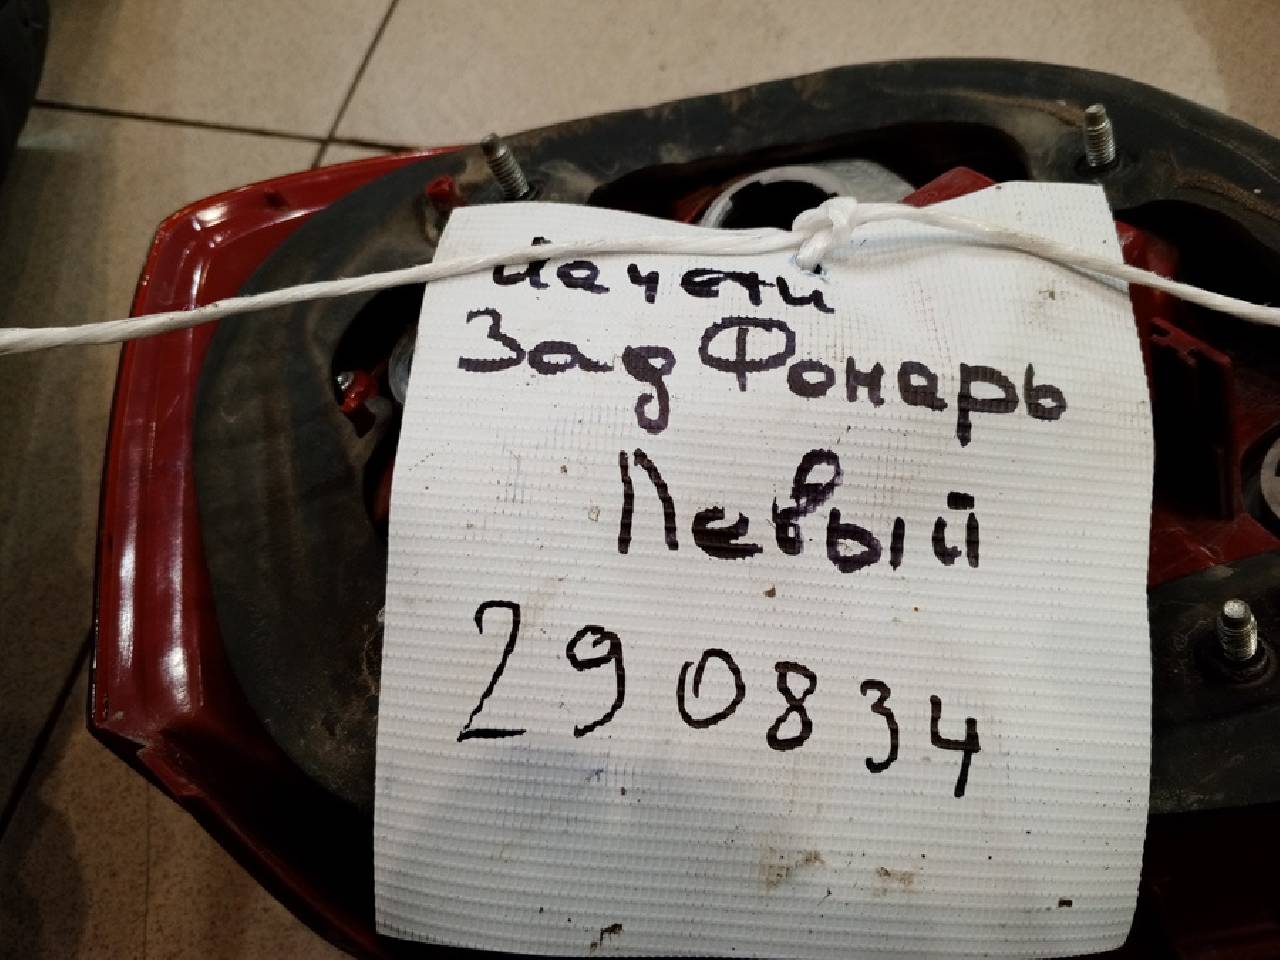 Зад Фонарь
Левый
290834